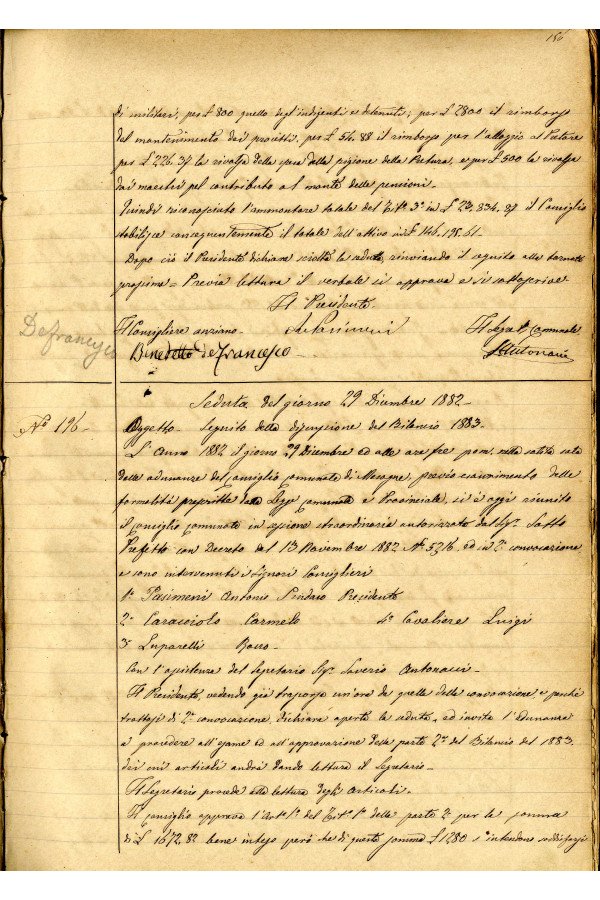 186
di militari, per £ 800 quello degl'indigenti e detenuti, per £ 2800 il rimborso
del mantenimento dei proietti, per £ 54.88 il rimborso per l'alloggio al Pretore
per £ 226.37 la rivalsa della spesa della pigione della Pretura, e per £ 500 la rivalsa
dai maestri pel contributo al monte delle pensioni.
Quindi riconosciuto l'ammontare totale del Tit° 3° in £ 23,834.97 il Consiglio
stabilisce conseguentemente il totale dell'attivo in £ 146,198.61.
Dopo ciò il Presidente dichiara sciolta la seduta, rinviando il seguito alla tornata
prossima = Previa lettura il verbale si approva e si sottoscrive
Il Presidente
Il Consigliere anziano
A. Pasimeni
Il Seg.° Comunale
Defrancesco
Benedetto deFrancesco
S. Antonucci
Seduta del giorno 29 Dicembre 1882
N° 196
Oggetto = Seguito della discussione del Bilancio 1883.
L'Anno 1882 il giorno 29 Dicembre ed alle ore tre pom. nella solita sala
delle adunanze del Consiglio comunale di Mesagne, previo esaurimento delle
formalità prescritte dalla Legge Comunale e Provinciale, si è oggi riunito
il Consiglio Comunale in sessione straordinaria autorizzata dal Sig.r Sotto
Prefetto con Decreto del 13 Novembre 1882 N° 5316, ed in 2ª convocazione
e sono intervenuti i Signori Consiglieri
1° Pasimeni Antonio Sindaco Presidente
2° Caracciolo Carmelo 4° Cavaliere Luigi
3° Luparelli Rocco
Con l'assistenza del Segretario Sig.r Saverio Antonucci
Il Presidente, vedendo già trascorsa un'ora da quella della convocazione, e perchè
trattasi di 2ª convocazione, dichiara aperta la seduta, ed invita l'Adunanza
a procedere all'esame ed all'approvazione della parte 2ª del Bilancio del 1883.
dei cui articoli andrà dando lettura il Segretario.
Il Segretario procede alla lettura degli Articoli.
Il consiglio approva l'Art° 1° del Tit° 1° della parte 2ª per la somma
di £ 1672.82 bene inteso però che di questa somma £ 1280 s'intendono soddisfarsi